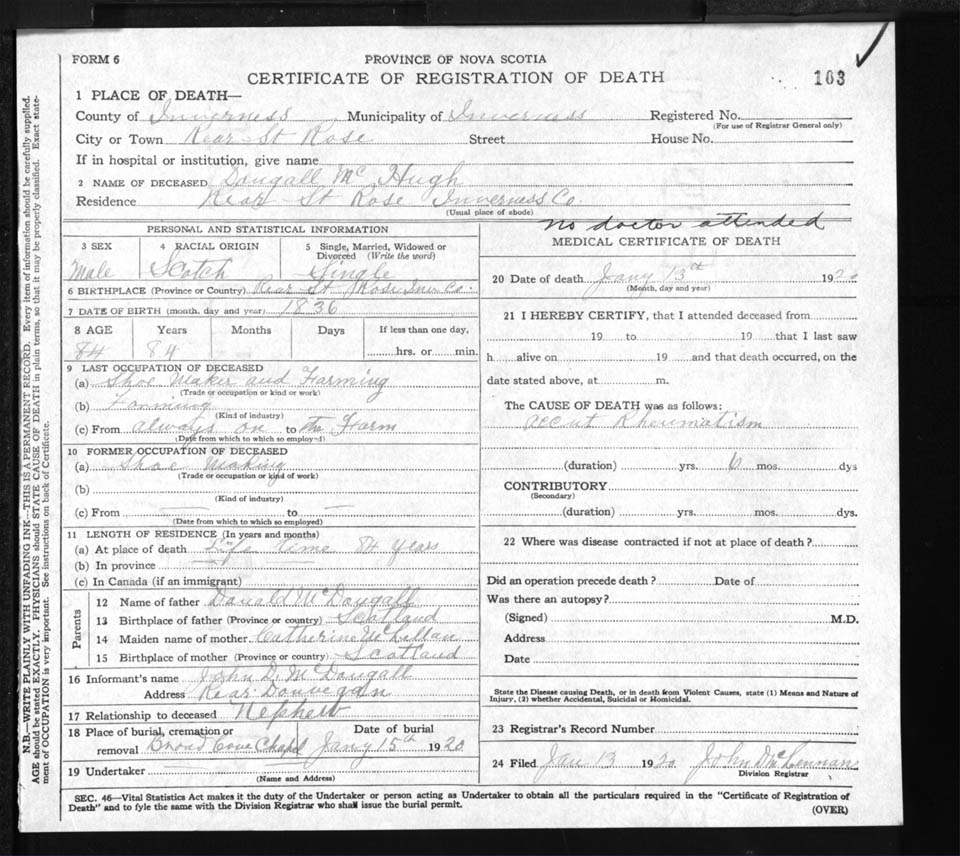 FORM 6
PROVINCE OF NOVA SCOTIA
CERTIFICATE OF REGISTRATION OF DEATH
103
1 PLACE OF DEATH—
County of Inverness Municipality of Inverness Registered No.
(For use of Registrar General only)
City or Town Rear St Rose Street House No.
If in hospital or institution, give name
2 NAME OF DECEASED Dougall Mc Hugh
Residence Rear St Rose Inverness Co.
(Usual place of abode)
PERSONAL AND STATISTICAL INFORMATION
3 SEX 4 RACIAL ORIGIN 5 Single, Married, Widowed or Divorced (Write the word)
Male Scotch Single
6 BIRTHPLACE (Province or Country) Rear St Rose Inv. Co.
7 DATE OF BIRTH (month, day and year) 1836
8 AGE Years Months Days If less than one day,
84 84 hrs. or min.
9 LAST OCCUPATION OF DECEASED
(a) Shoe Maker and Farming
(Trade or occupation or kind or work)
(b) Farming
(Kind of industry)
(c) From always on to the Farm
(Date from which to which so employed)
10 FORMER OCCUPATION OF DECEASED
(a) Shoe Making
(Trade or occupation or kind of work)
(b)
(Kind of industry)
(c) From — to —
(Date from which to which so employed)
11 LENGTH OF RESIDENCE (In years and months)
(a) At place of death Life time 84 years
(b) In province
(c) In Canada (if an immigrant)
Parents
12 Name of father Donald McDougall
13 Birthplace of father (Province or country) Scotland
14 Maiden name of mother Catherine McLellan
15 Birthplace of mother (Province or country) Scotland
16 Informant's name John D. McDougall
Address Rear Dunvegan
17 Relationship to deceased Nephew
18 Place of burial, cremation or removal Broad Cove Chapel Date of burial Jany 15th 1920
19 Undertaker
(Name and Address)
No doctor attended
MEDICAL CERTIFICATE OF DEATH
20 Date of death Jany 13th 1920
(Month, day and year)
21 I HEREBY CERTIFY, that I attended deceased from
19 to 19 that I last saw
h alive on 19 and that death occurred, on the
date stated above, at m.
The CAUSE OF DEATH was as follows:
accut Rheumatism
(duration) yrs. 6 mos. dys
CONTRIBUTORY
(Secondary)
(duration) yrs. mos. dys.
22 Where was disease contracted if not at place of death?
Did an operation precede death? Date of
Was there an autopsy?
(Signed) M.D.
Address
Date
State the Disease causing Death, or in death from Violent Causes, state (1) Means and Nature of
Injury, (2) whether Accidental, Suicidal or Homicidal.
23 Registrar's Record Number
24 Filed Jan 13 1920 John D McLennan
Division Registrar
SEC. 46—Vital Statistics Act makes it the duty of the Undertaker or person acting as Undertaker to obtain all the particulars required in the "Certificate of Registration of
Death" and to fyle the same with the Division Registrar who shall issue the burial permit.
(OVER)
N.B.—WRITE PLAINLY WITH UNFADING INK—THIS IS A PERMANENT RECORD. Every item of information should be carefully supplied.
AGE should be stated EXACTLY. PHYSICIANS should STATE CAUSE OF DEATH in plain terms, so that it may be properly classified. Exact state-
ment of OCCUPATION is very important. See instructions on back of Certificate.